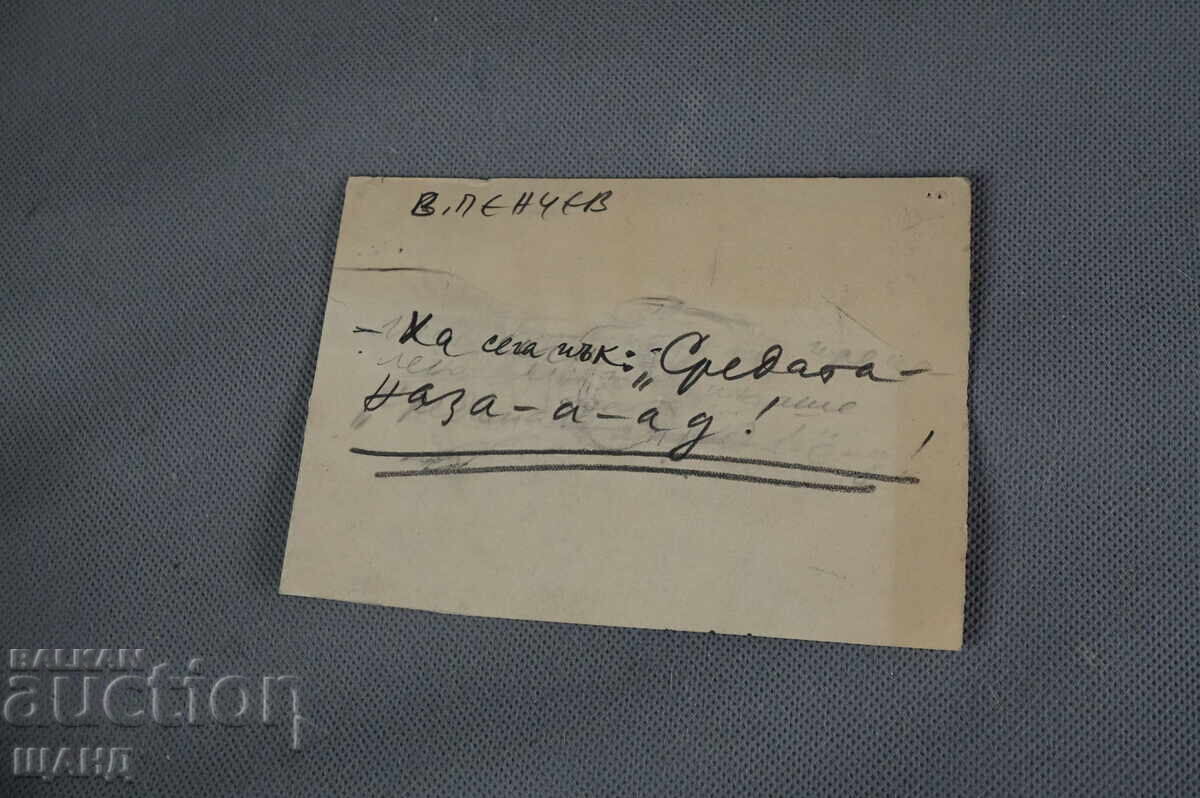 В. ПЕНЧЕВ
- Ха сега пък: „Средата-
наза-а-ад!
!
BALKAN
auction
ШАНД